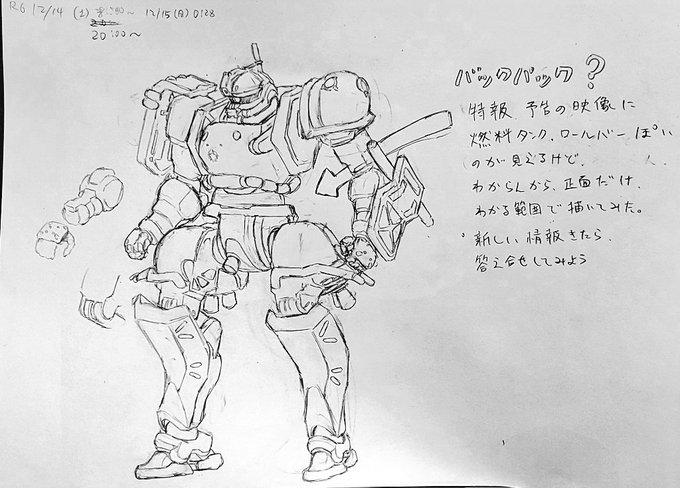 R6 12/14 (土) 20:00～ 12/15(日) 0128
バックパック?
特報、予告の映像に
燃料タンク、ロールバーっぽい
のが見えるけど、
わからんから、正面だけ、
わかる範囲で描いてみた。
新しい情報きたら、
答え合せしてみよう